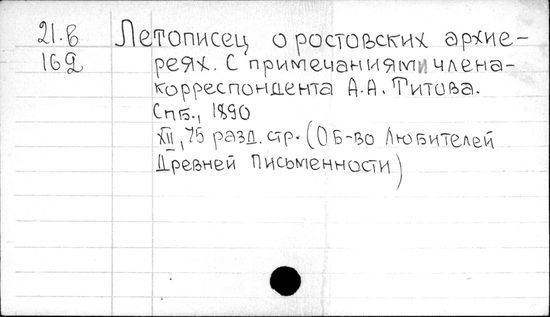 21.в Летописец о ростовских архие-
169 реях. С примечаниями члена-
корреспондента А.А. Титова.
Спб., 1890
XII, 75 разд. стр. (Об-во Любителей
Древней Письменности)